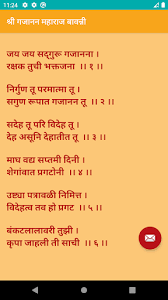 11:24
श्री गजानन महाराज बावन्नी
जय जय सदगुरू गजानना ।
रक्षक तुची भक्तजना ।। १ ।।
निर्गुण तू परमात्मा तू ।
सगुण रूपात गजानन तू ।। २ ।।
सदेह तू परि विदेह तू ।
देह असूनि देहातीत तू ।। ३ ।।
माघ वद्य सप्तमी दिनी ।
शेगांवात प्रगटोनी ।। ४ ।।
उष्ट्या पत्रावळी निमित्त ।
विदेहत्व तव हो प्रगट ।। ५ ।।
बंकटलालावरी तुझी ।
कृपा जाहली ती साची ।। ६ ।।